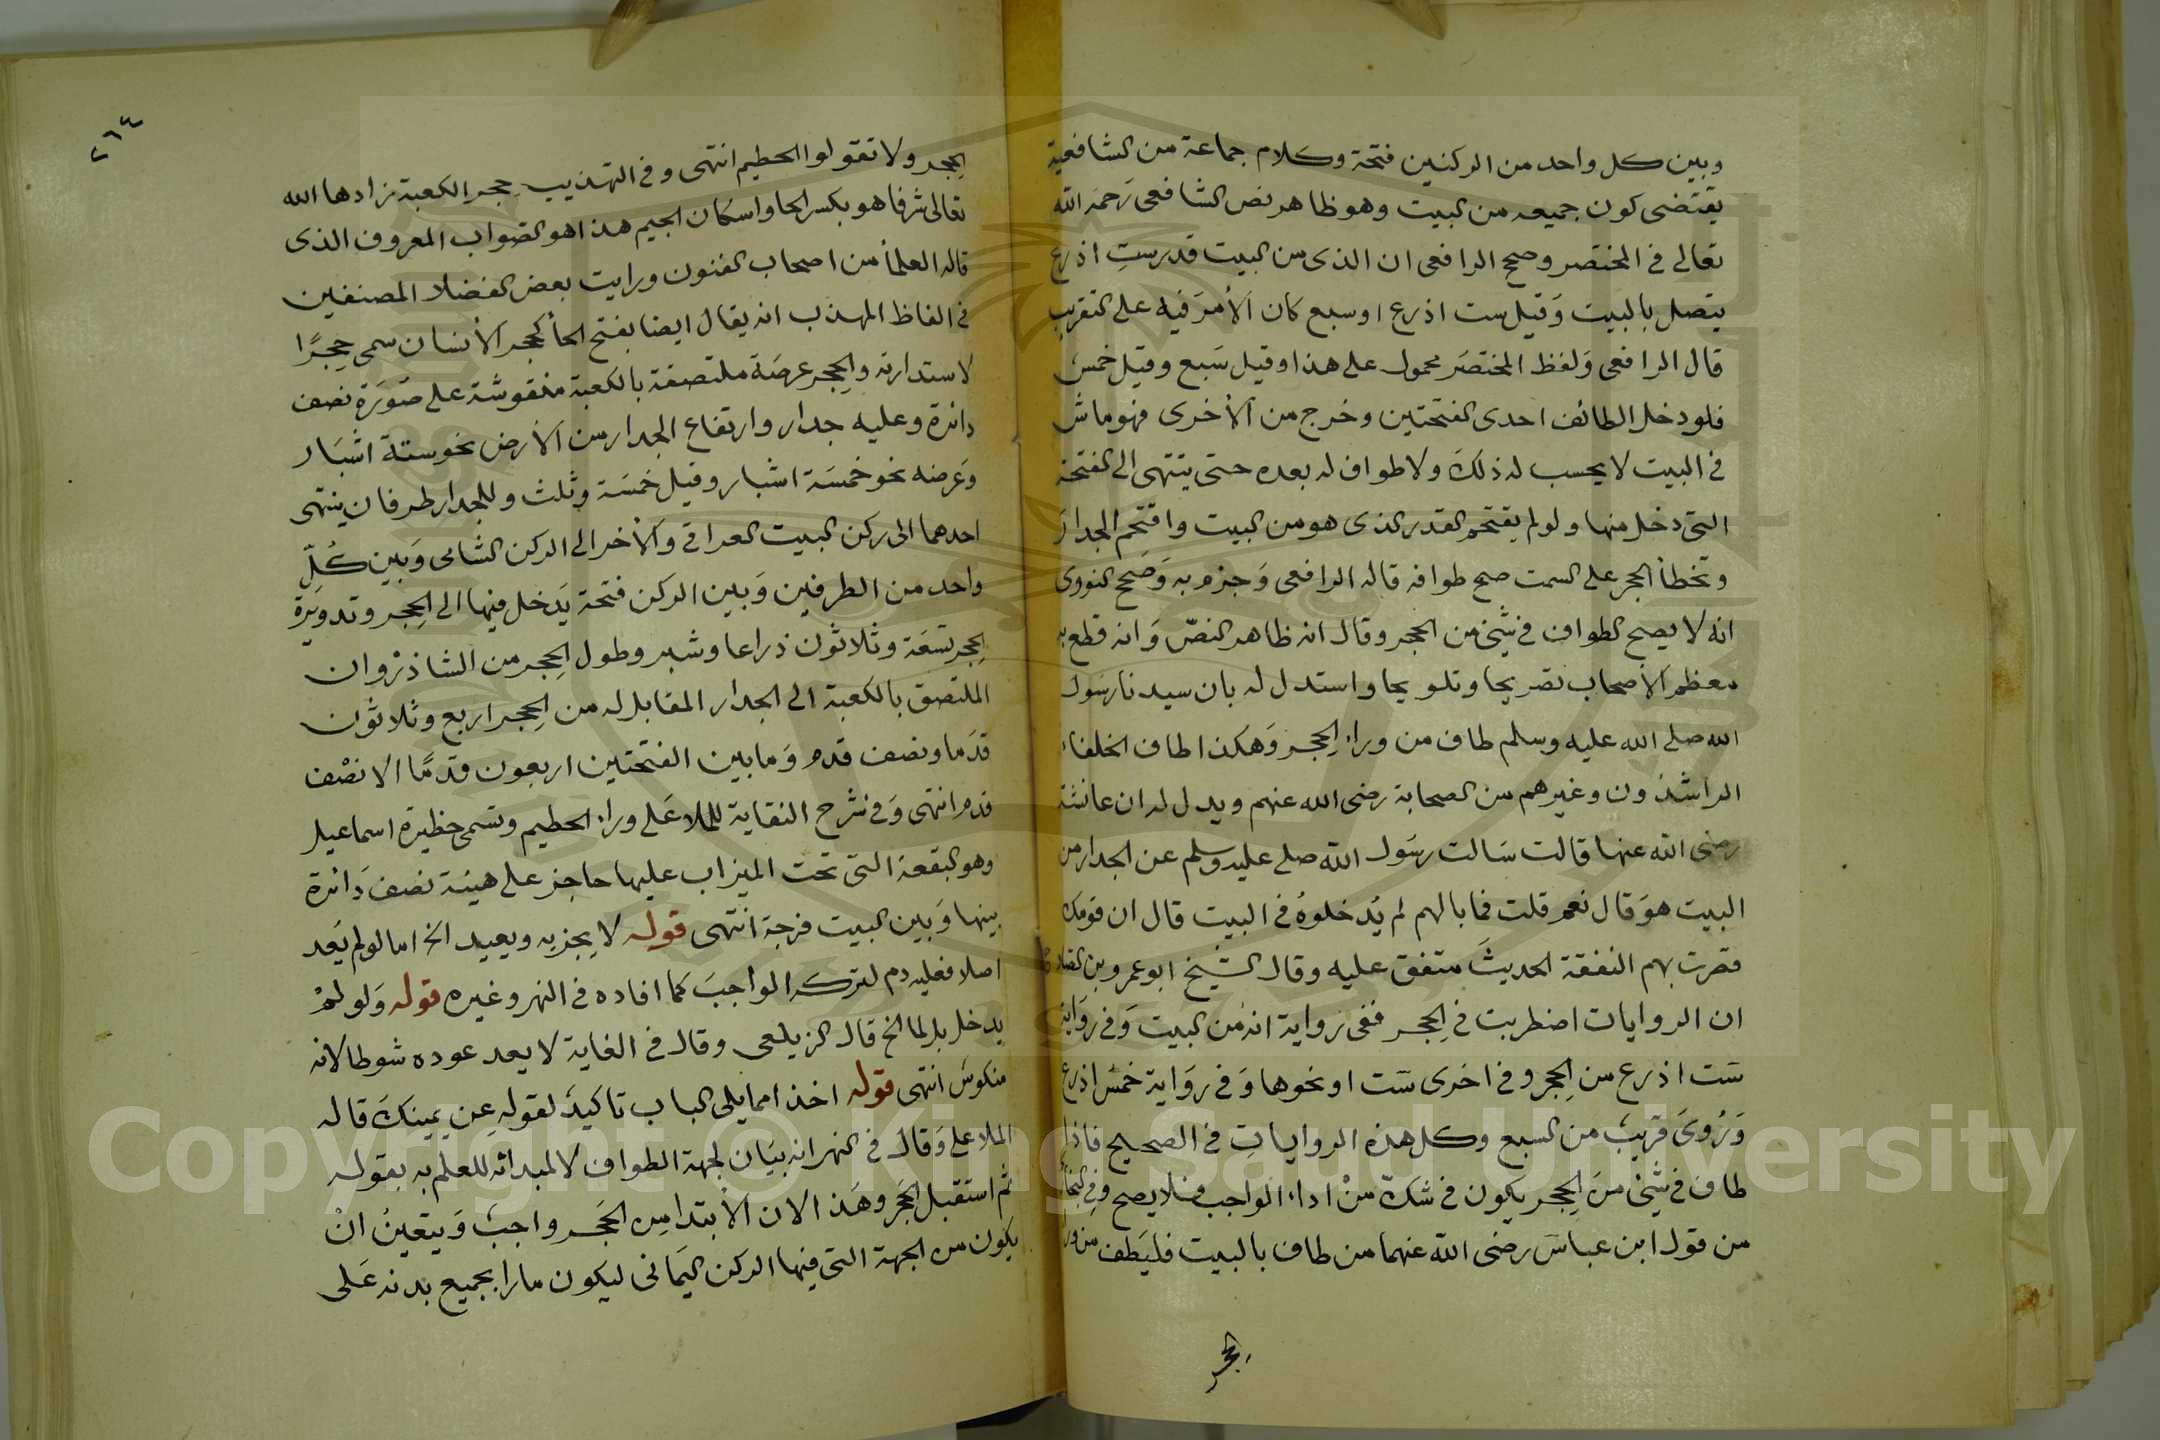 وبين كل واحد من الركنين فتحة وكلام جماعة من الشافعية
يقتضى كون جميعه من البيت وهو ظاهر نص الشافعى رَحمَه الله
تعالى فى المختصر وصحح الرافعى ان الذى من البيت قدر ستِ اذرع
يتصل بالبيت وَقيل ست اذرع اوسبع كان الأمرَ فيه على التقريب
قال الرافعى وَلفظ المختصَر محمول على هذا وقيل سَبع وقيل خمسٌ
فلو دخل الطائف احدى الفتحتين وخرج من الأخرى فهو ماش
فى البيت لا يحسب له ذلكَ ولا طواف له بعده حتى ينتهى الى الفتحة
التى دخل منها ولو لم يقتحم القدر الذى هو من البيت واقتحم الجدارَ
وتخطأ الحجر على السمت صح طوافه قاله الرافعى وَجزم به وَصَحح النووى
انه لا يصح الطواف فى شَئ من الحجر وقال انه ظاهر النصّ وَانه قطع به
معظم الأصحاب تصريحا وتلويحا واستدل له بان سيدنا رسَول
الله صلى الله عليه وسلم طاف من وراء الحِجر وَهكذا طاف الخلفاء
الراشدُون وغيرهم من الصحابة رضى الله عنهم ويدل له ان عائشة
رضى الله عنها قالت سَالت رسَول الله صلى عليه وسلم عن الجدار من
البيت هوَ قال نعم قلت فما بالهم لم يُدخلوهُ فى البيت قال ان قومك
قصرت بهم النفقة الحديثَ متفق عليه وقال الشيخ ابو عمرو بن الصلاح
ان الروايات اضطربت فى الحِجر ففى روَاية انه من البيت وَفى روَاية
سَت اذرع من الحِجر وفى اخرى سَت او نحوها وَفى روَاية خمسَ اذرع
وَرُوىَ قريبٌ من السبع وكل هذه الرواياتِ فى الصحيح فاذا
طافَ فى شئ منَ الحِجر يكون فى شكّ منْ اداء الواجب فلا يصح وفى البخارى
من قول ابن عباسَ رضى الله عنهما من طاف بالبيت فليَطف من وراء
الحجر
٢٦٤
الحِجر ولا تقولوا الحطيم انتهى وفى التهذيب حجر الكعبة زادها الله
تعالى شرفا هو بكسر الحا واسكان الجيم هذا هو الصواب المعروف الذى
قاله العلمأ من اصحاب الفنون ورايت بعض الفضلا المصنفين
فى الفاظ المهذب انه يقال ايضا بفتح الحأ كحجر الأنسان سمى حِجرًا
لاستدارته والحِجر عرصَة ملتصقة بالكعبة منقوشة على صَورَة نصف
دائرة وعليه جدار وارتفاع الجدار من الأرض نحو ستة اشبَار
وَعرضه نحو خمسَة اشبار وقيل خمَسة وثلث وللجدار طرفان ينتهى
احدهما الى ركن البيت العراقى وَالأخر الى الركن الشامى وَبين كُلّ
واحد من الطرفين وَبين الركن فتحة يَدخل منها الى الحِجر وتدويَرة
الحِجر تسَعَة وثلاثون ذراعا وشبر وطول الحِجر من الشاذروان
الملتصق بالكعبة الى الجدار المقابل له من الحِجر اربع وثلاثون
قدَما ونصف قدم وَما بين الفتحتين اربعون قدمًا الا نصْف
قدم انتهى وَفى شرح النقاية للملا عَلى وراء الحطيم وتسَمى حظيرة اسماعيل
وهو البقعة التى تحت الميزاب عليها حاجز على هيئة نصف دَائرة
بينها وَبين البيت فرجة انتهى قوله لا يجزيه ويعيد الخ اما لو لم يَعد
اصلا فعليه دم لتركه الواجبَ كما افاده فى النهر وغيره قوله وَلو لمْ
يدخل بل لما الخ قال الزيلعى وقال فى الغاية لا يعد عوده شوطا لانه
منكوسَ انتهى قوله اخذا مما يلى الباب تاكيد لقوله عن يمينكَ قاله
الملا على وَقال فى النهر انه بيَان لجهة الطواف لا لمبدائه للعلم به بقوله
ثم استقبل الحجَر وهَذا لان الأبتدا من الحجَر واجبٌ وَيتعينُ انْ
يكون من الجهة التى فيها الركن اليمَانى ليكون مارا بجميع بدنه عَلى
Copyright © King Saud University